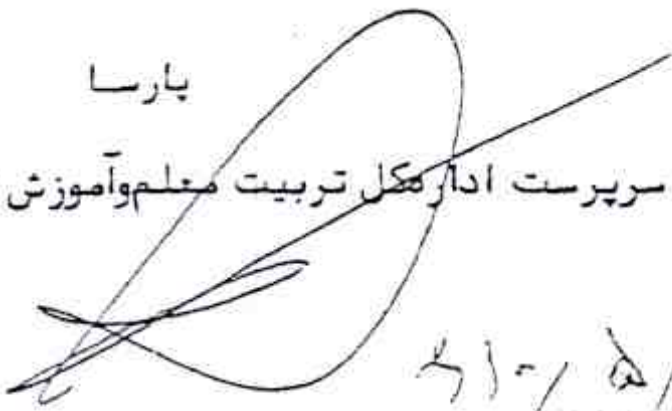 پارسا
سرپرست اداره‌کل تربیت معلم‌وآموزش